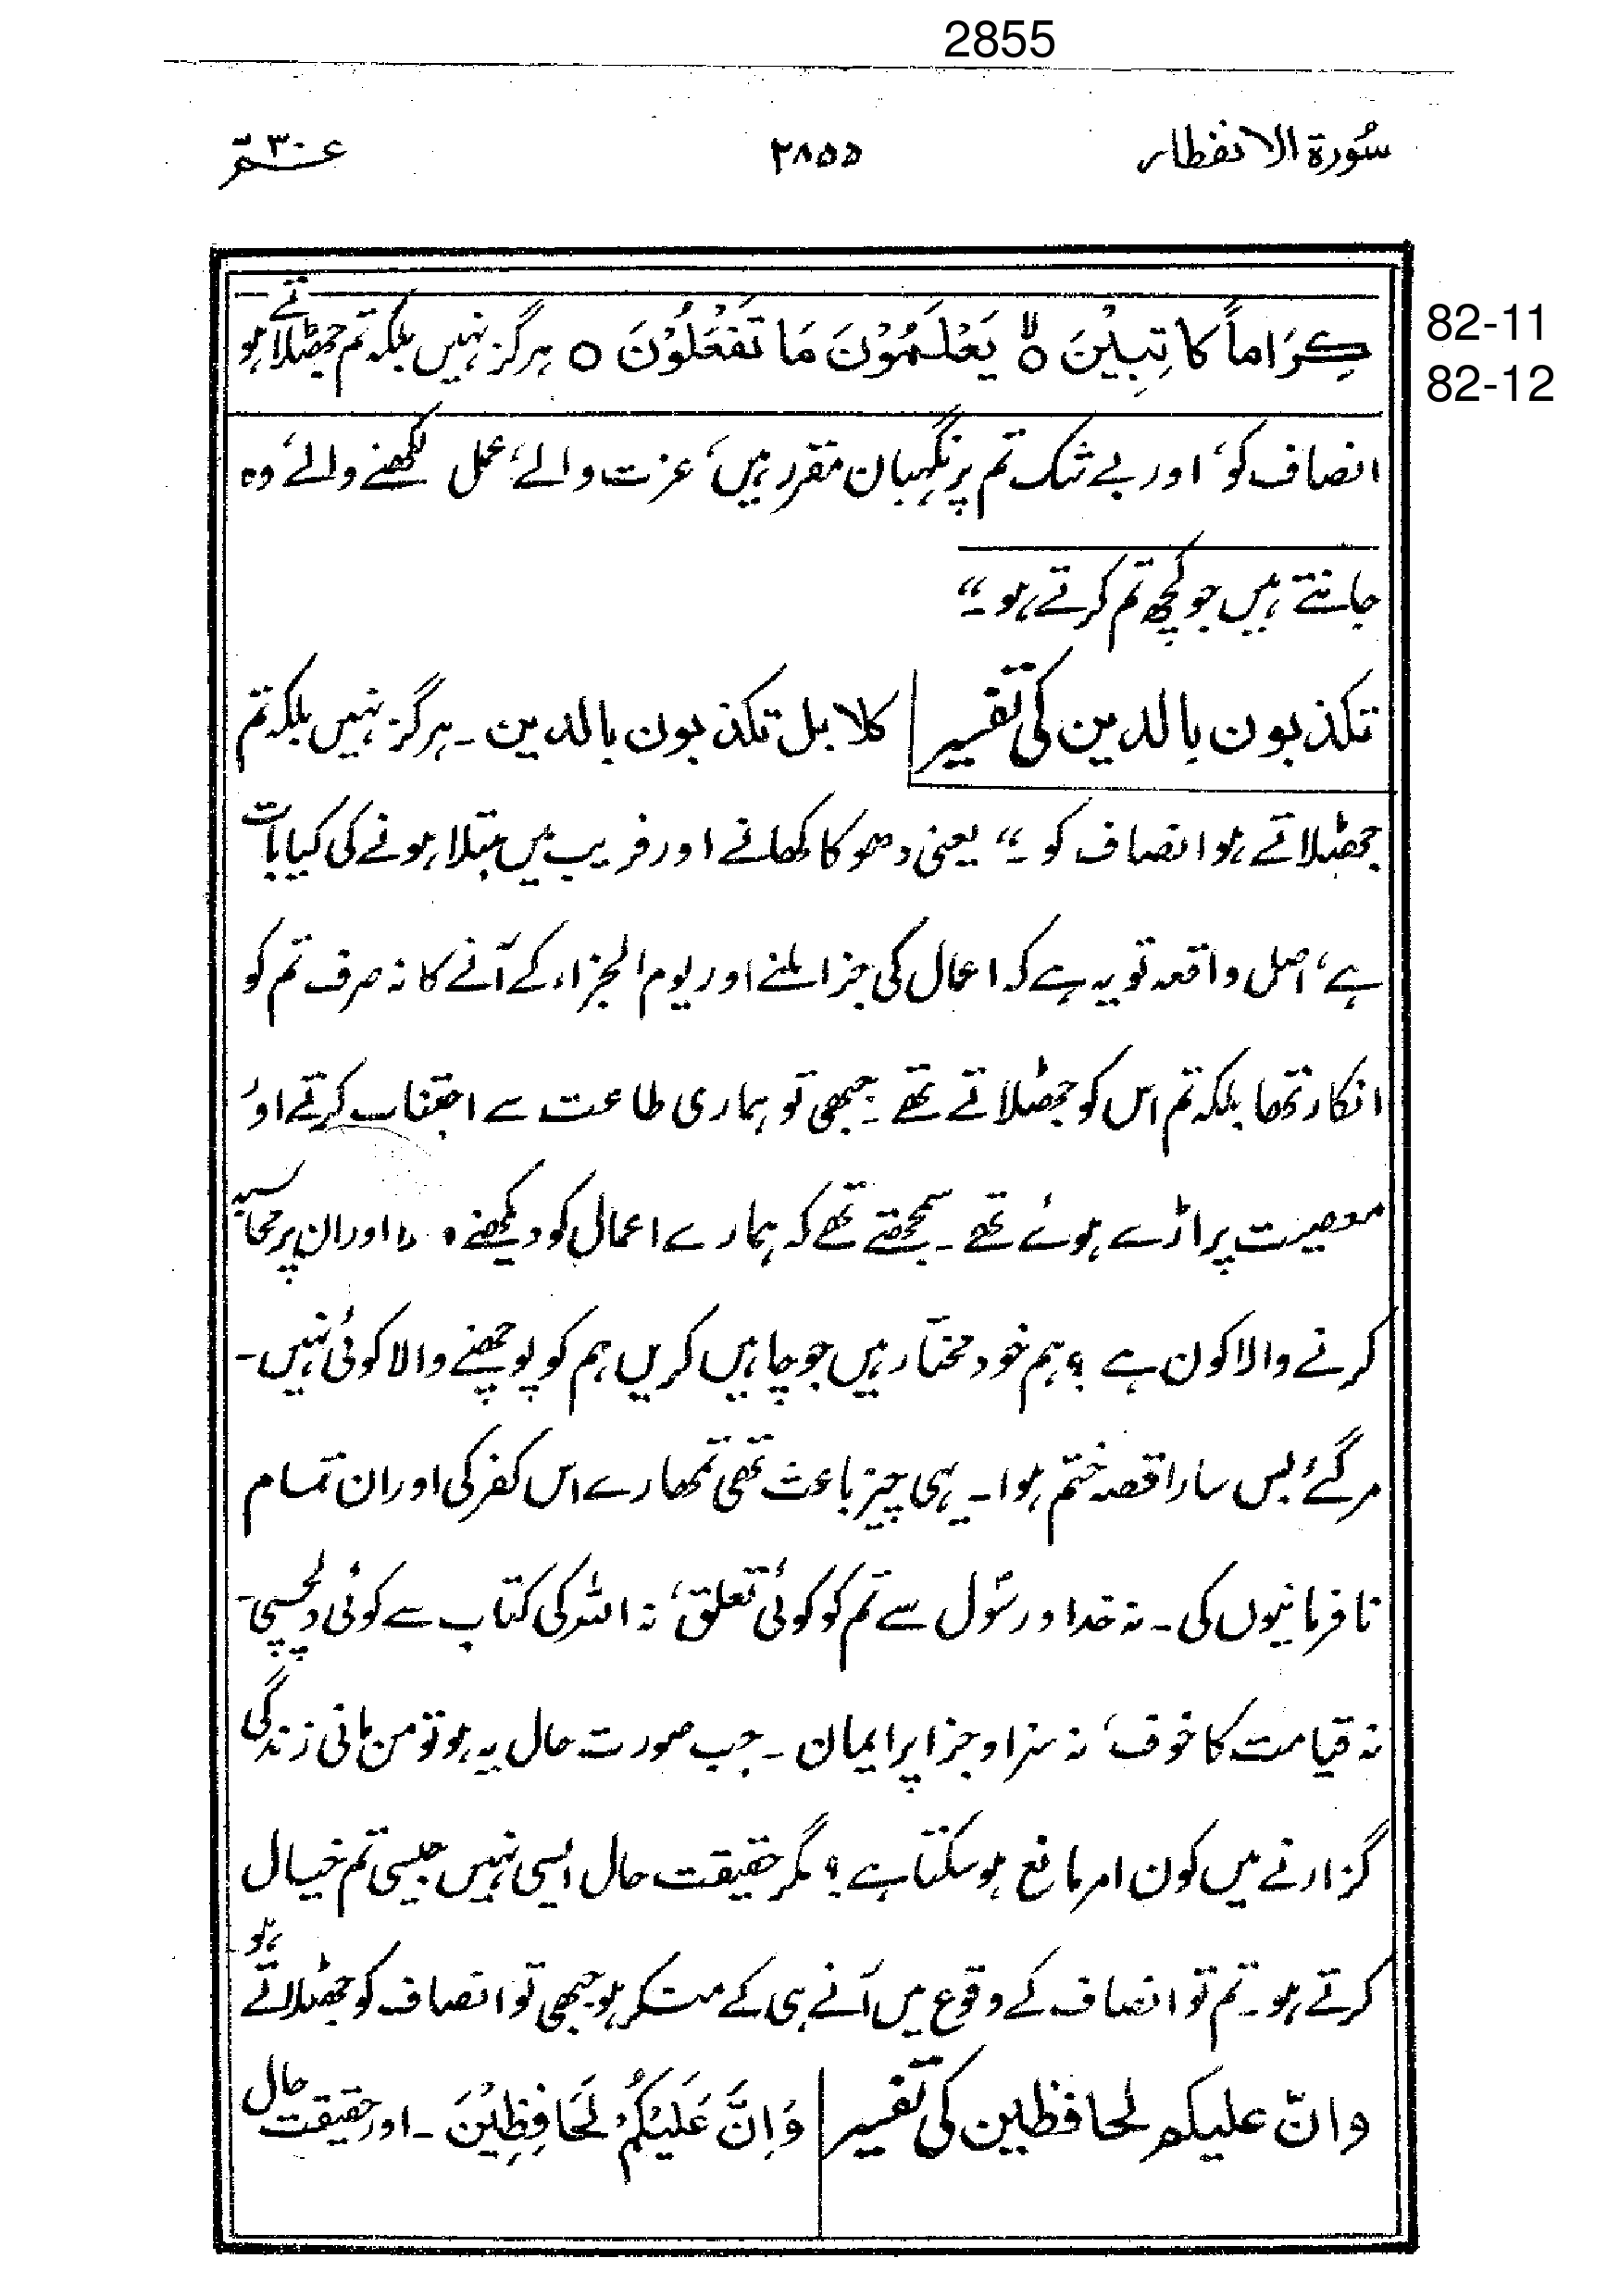 2855
سُورة الانفطار ۲۸۵۵ عمّ ۳۰
كِرَاماً كَاتِبِيْنَ ۝ۙ يَعْلَمُوْنَ مَا تَفْعَلُوْنَ ۝ ہرگز نہیں بلکہ تم جھٹلاتے ہو
82-11
82-12
انصاف کو، اور بے شک تم پر نگہبان مقرر ہیں، عزت والے، عمل لکھنے والے، وہ
جانتے ہیں جو کچھ تم کرتے ہو۔“
تکذبون بالدین کی تفسیر کلا بل تکذبون بالدین ۔ ہرگز نہیں بلکہ تم
جھٹلاتے ہو انصاف کو۔“ یعنی دھوکا کھانے اور فریب میں مبتلا ہونے کی کیا بات
ہے، اصل واقعہ تو یہ ہے کہ اعمال کی جزا ملنے اور یوم الجزاء کے آنے کا نہ صرف تم کو
انکار تھا بلکہ تم اس کو جھٹلاتے تھے ۔ جبھی تو ہماری طاعت سے اجتناب کرتے اور
معصیت پر اڑے ہوئے تھے ۔ سمجھتے تھے کہ ہمارے اعمال کو دیکھنے اور ان پر محاسبہ
کرنے والا کون ہے ؟ ہم خود مختار ہیں جو چاہیں کریں ہم کو پوچھنے والا کوئی نہیں ۔
مرگئے بس سارا قصہ ختم ہوا ۔ یہی چیز باعث تھی تمھارے اس کفر کی اور ان تمام
نافرمانیوں کی ۔ نہ خدا و رسُول سے تم کو کوئی تعلق، نہ اللہ کی کتاب سے کوئی دلچسپی ۔
نہ قیامت کا خوف، نہ سزا و جزا پر ایمان ۔ جب صورت حال یہ ہو تو من مانی زندگی
گزارنے میں کون امر مانع ہو سکتا ہے ؟ مگر حقیقت حال ایسی نہیں جیسی تم خیال
کرتے ہو۔ تم تو انصاف کے وقوع میں آنے ہی کے منکر ہو جبھی تو انصاف کو جھٹلاتے ہو۔
وانّ علیکم لحافظین کی تفسیر وَاِنَّ عَلَيْكُمْ لَحَافِظِيْنَ ۔ اور حقیقت حال